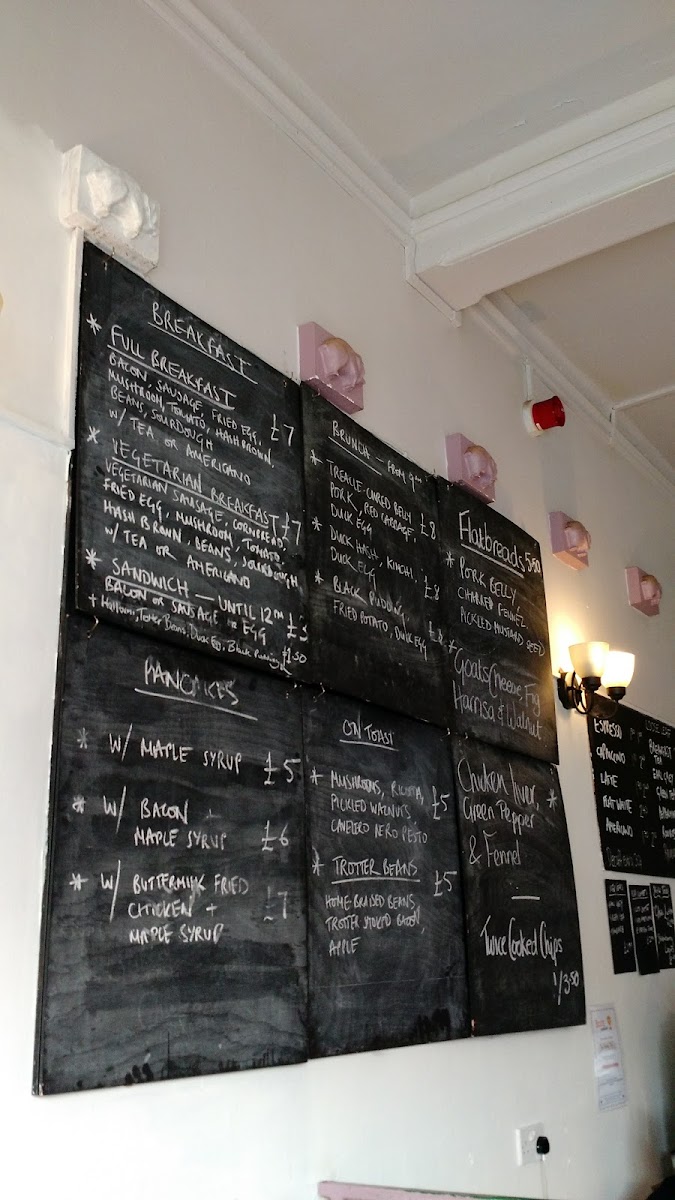 BREAKFAST
* FULL BREAKFAST
BACON, SAUSAGE, FRIED EGG,
MUSHROOM, TOMATO, HASH BROWN,
BEANS, SOURDOUGH £7
W/ TEA OR AMERICANO
* VEGETARIAN BREAKFAST £7
VEGETARIAN SAUSAGE, CORNBREAD,
FRIED EGG, MUSHROOM, TOMATO,
HASH BROWN, BEANS, SOURDOUGH
W/ TEA OR AMERICANO
* SANDWICH — UNTIL 12PM
BACON OR SAUSAGE OR EGG £3
+ Halloumi, Tomato, Beans, Duck Egg, Black Pudding £1.50
PANCAKES
* W/ MAPLE SYRUP £5
* W/ BACON +
MAPLE SYRUP £6
* W/ BUTTERMILK FRIED
CHICKEN + £7
MAPLE SYRUP
BRUNCH — FROM 9am
* TREACLE-CURED BELLY
PORK, RED CABBAGE, £8
DUCK EGG
* DUCK HASH, KIMCHI, £8
DUCK EGG
* BLACK PUDDING,
FRIED POTATO, DUCK EGG
ON TOAST
* MUSHROOMS, RICOTTA,
PICKLED WALNUTS, £5
CAVOLO NERO PESTO
* TROTTER BEANS £5
HOME-BRAISED BEANS,
TROTTER BACON,
APPLE
Flatbreads 5.50
* PORK BELLY
CHARRED FENNEL
PICKLED MUSTARD SEED
* Goats Cheese, Fig
Harrisa & Walnut
Chicken liver, *
Green Pepper
& Fennel
Twice Cooked Chips
1/3.50
ESPRESSO
CAPPUCINO
LATTE
FLAT WHITE
AMERICANO
LOOSE LEAF
BREAKFAST TEA
EARL GREY